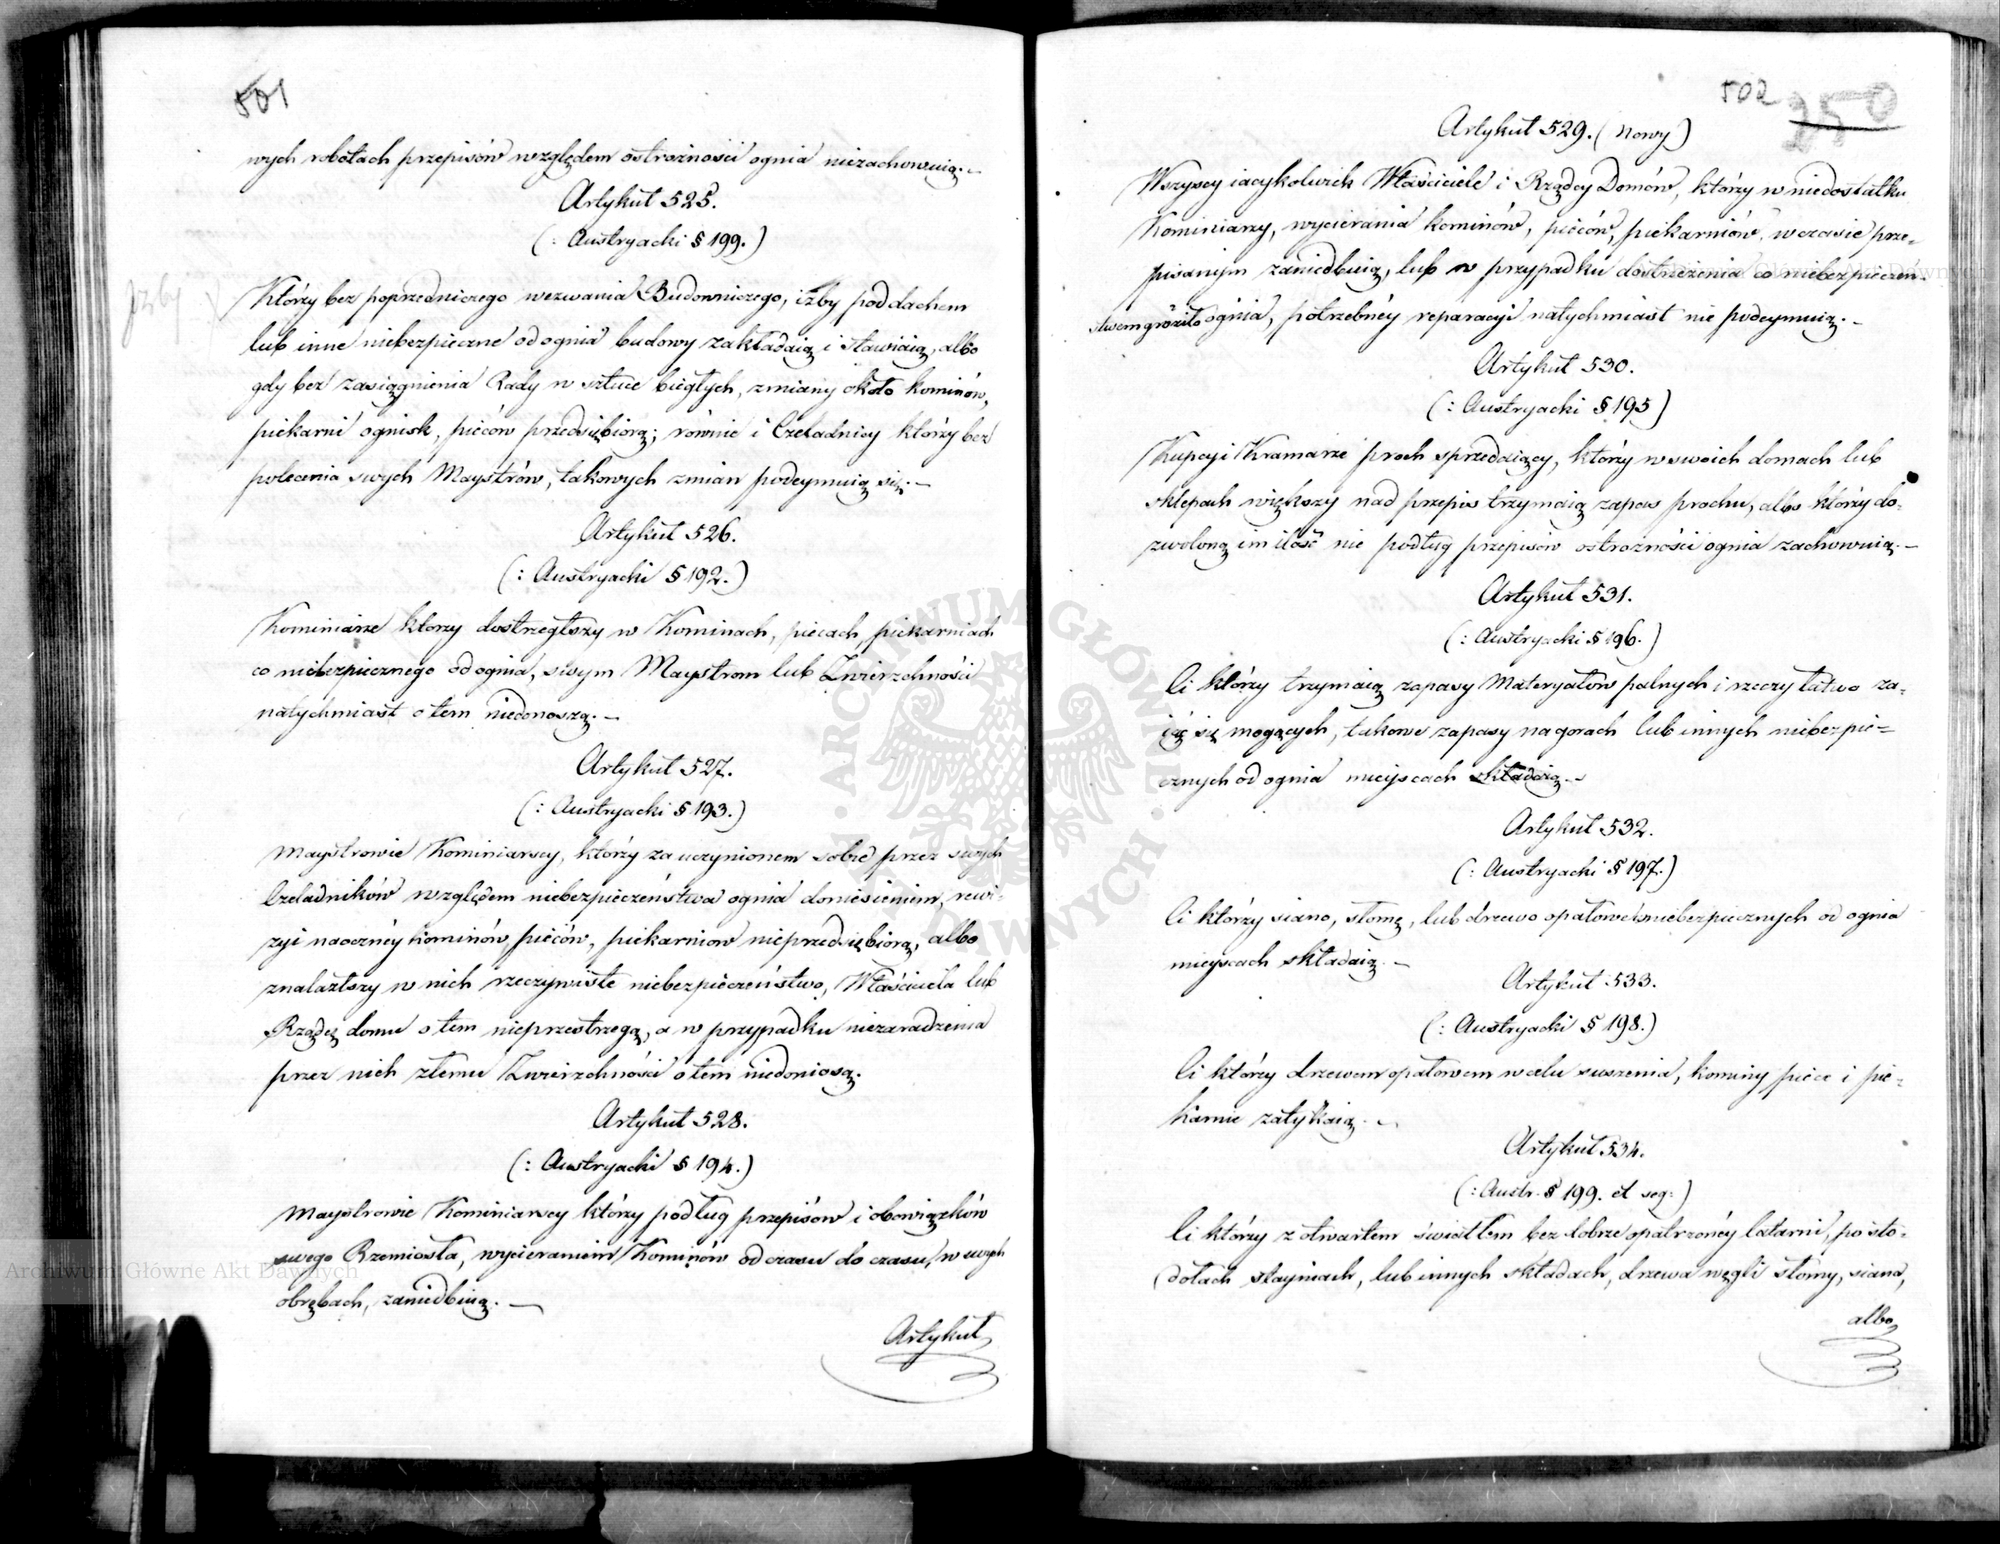 501
wych robotach przepisów względem ostrożności ognia niezachowuią.
Artykuł 525.
(: Austryacki § 199.)
Którzy bez poprzedniczego wezwania Budowniczego, izby pod dachem
lub inne niebezpieczne od ognia budowy zakładaią i stawiaią, albo
gdy bez zasiągnienia Rady w sztuce biegłych, zmiany około kominów,
piekarni ognisk, pieców przedsiębiorą; równie i Czeladnicy którzy bez
polecenia swych Maystrów, takowych zmian podeymuią się. —
Artykuł 526.
(: Austryacki § 192.)
Kominiarze którzy dostrzegłszy w Kominach, piecach piekarniach
co niebezpiecznego od ognia, swym Maystrom lub Zwierzchności
natychmiast o tem niedonoszą. —
Artykuł 527.
(: Austryacki § 193.)
Maystrowie Kominiarscy, którzy za uczynionem sobie przez swych
Czeladników względem niebezpieczeństwa ognia doniesieniem, rewi-
zyi naoczney kominów, pieców, piekarniow nieprzedsiębiorą, albo
znalazłszy w nich rzeczywiste niebezpieczeństwo, Właściciela lub
Rządcę domu o tem nieprzestrzegą, a w przypadku niezaradzenia
przez nich złemu Zwierzchności o tem niedoniosą.
Artykuł 528.
(: Austryacki § 194.)
Maystrowie Kominiarscy którzy podług przepisów i obowiązków
swego Rzemiosła, wycieraniem Kominów od czasu do czasu, w swych
obrębach, zaniedbuią. —
Artykuł
502
250
Artykuł 529. (Nowy)
Wszyscy iacykolwiek Właściciele i Rządcy Domów, którzy w niedostatku
Kominiarzy, wycierania kominów, pieców, piekarniów, w czasie prze-
pisanym zaniedbuią, lub w przypadku dostrzeżenia co niebezpieczeń-
stwem groziło ognia, potrzebney reparacyi natychmiast nie podeymuią. —
Artykuł 530.
(: Austryacki § 195)
Kupcy i Kramarze proch sprzedaiący, którzy w swoich domach lub
sklepach większy nad przepis trzymaią zapas prochu, albo którzy do-
zwoloną im ilość nie podług przepisów ostrożności ognia zachowuią. —
Artykuł 531.
(: Austryacki § 196.)
Ci którzy trzymaią zapasy Materyałów palnych i rzeczy łatwo za-
iąć się mogących, takowe zapasy na gorach lub innych niebezpie-
cznych od ognia mieyscach składaią. —
Artykuł 532.
(: Austryacki § 197.)
Ci którzy siano, słomę, lub drzewo opałowe w niebezpiecznych od ognia
mieyscach składaią. —
Artykuł 533.
(: Austryacki § 198.)
Ci którzy drzewem opałowem w celu suszenia, kominy piece i pie-
karnie zatykaią. —
Artykuł 534.
(: Austr. § 199. et seq:)
Ci którzy z otwartem światłem bez dobrze opatrzoney latarni, po sto-
dołach stayniach, lub innych składach, drzewa węgli słomy, siana,
albo